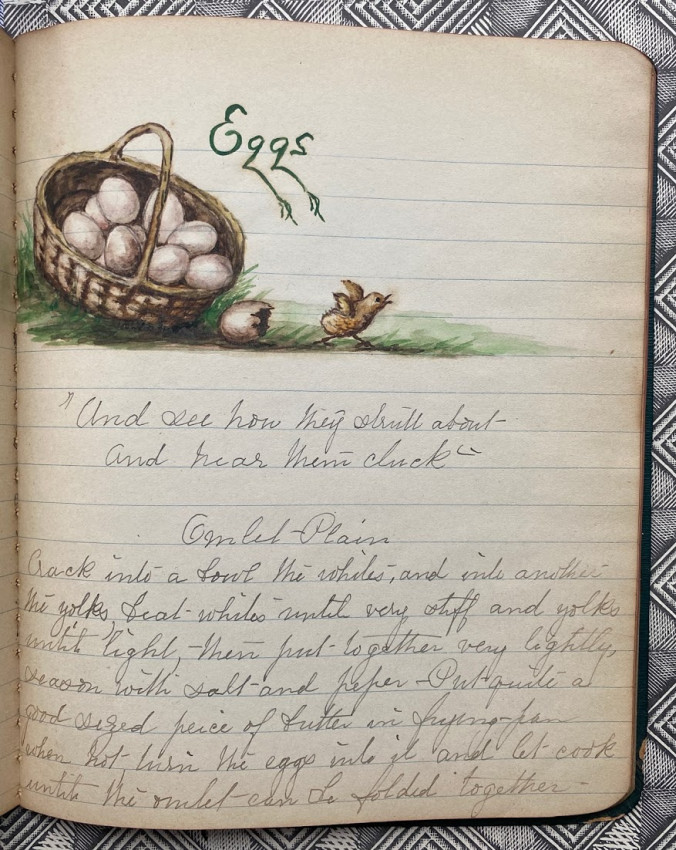 Eggs
"And see how they strutt about
And hear them cluck"
Omlet-Plain
Crack into a bowl the whites, and into another
the yolks, beat whites until very stiff and yolks
until light, then put together very lightly,
season with salt and peper - Put quite a
good sized peice of butter in frying-pan
when hot turn the eggs into it and let cook
until the omlet can be folded together-